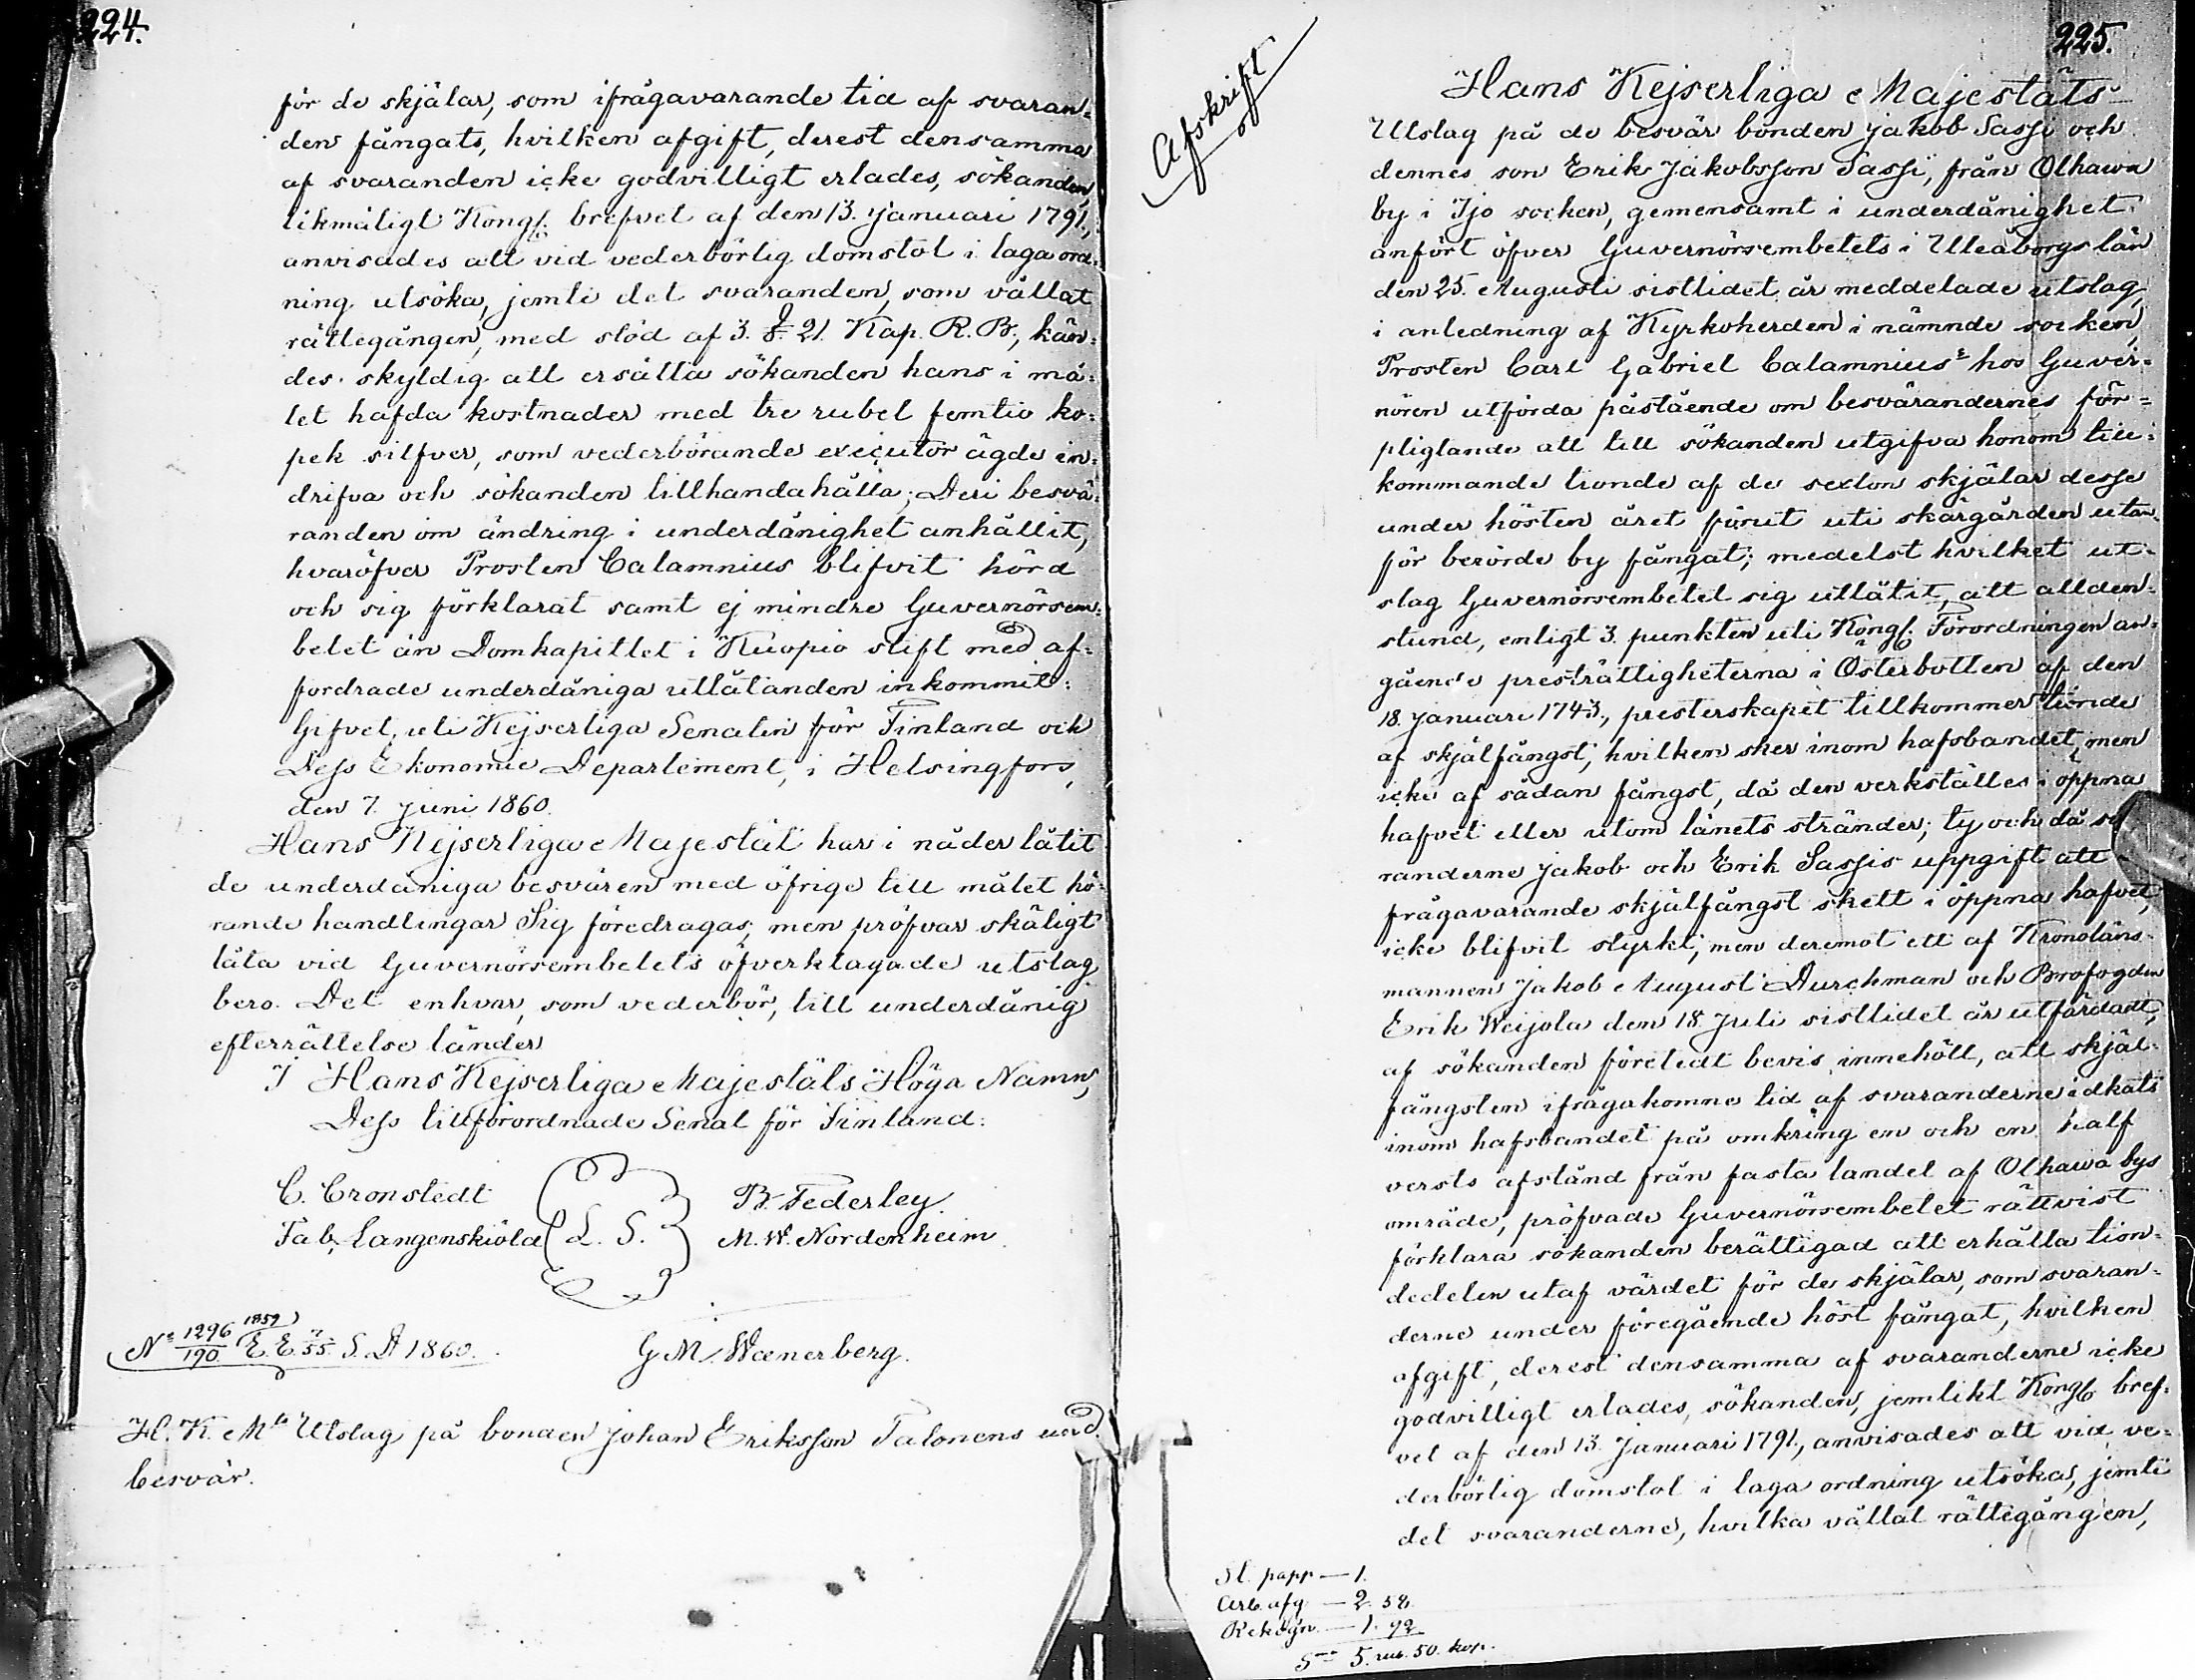 224.
för de skjälar, som ifrågavarande tid af svaran-
den fångats, hvilken afgift, derest densamma
af svaranden icke godvilligt erlades, sökanden,
likmäligt Kongl. brefvet af den 13. Januari 1791.,
anvisades att vid vederbörlig domstol i laga ord-
ning utsöka, jemte det svaranden, som vållat
rättegången, med stöd af 3. §. 21. Kap. R. B., kän-
des skyldig att ersätta sökanden hans i må-
let hafda kostnader med tre rubel femtio ko-
pek silfver, som vederbörande executor ägde in-
drifva och sökanden tillhandahålla; Deri besvä-
randen om ändring i underdånighet anhållit,
hvaröfver Prosten Calamnius blifvit hörd
och sig förklarat samt ej mindre Guvernörsem-
betet än Domkapitlet i Kuopio stift med af-
fordrade underdåniga utlåtanden inkommit:
Gifvet, uti Kejserliga Senaten för Finland och
Dess Ekonomie Departement, i Helsingfors,
den 7. Juni 1860.
Hans Kejserliga Majestät har i nåder låtit
de underdåniga besvären med öfrige till målet hö-
rande handlingar Sig föredragas; men pröfvar skäligt
låta vid Guvernörsembetets öfverklagade utslag
bero. Det enhvar, som vederbör, till underdånig
efterrättelse länder
I Hans Kejserliga Majestäts Höga Namn,
Dess tillförordnade Senat för Finland:
C. Cronstedt
B. Federley.
Fab. Langenskiöld
L. S.
M. W. Nordenheim
No 1296/190 1859 E. E. 7/55. S. D 1860.
G M. Wænerberg.
H. K. Mts Utslag på bonden Johan Eriksson Talonens und.
besvär.
225.
Afskrift
Hans Kejserliga Majestäts
Utslag på de besvär bonden Jakob Sassi och
dennes son Erik Jakobsson Sassi, från Olhawa
by i Ijo socken, gemensamt i underdånighet
anfört öfver Guvernörsembetets i Uleåborgs län
den 25. Augusti sistlidet år meddelade utslag,
i anledning af Kyrkoherden i nämnde socken,
Prosten Carl Gabriel Calamnius hos Guver-
nören utförda påstående om besvärandernes för-
pligtande att till sökanden utgifva honom till-
kommande tionde af de sexton skjälar desse
under hösten året förut uti skärgården utan-
för berörde by fångat; medelst hvilket ut-
slag Guvernörsembetet sig utlåtit, att allden-
stund, enligt 3. punkten uti Kongl. Förordningen an-
gående presträttigheterna i Österbotten af den
18. Januari 1743., presterskapet tillkommer tionde
af skjälfångst, hvilken sker inom hafsbandet, men
icke af sådan fångst, då den verkställes i öppna
hafvet eller utom länets stränder; ty och då
randerne Jakob och Erik Sassis uppgift att
frågavarande skjälfångst skett i öppna hafvet,
icke blifvit styrkt, men deremot ett af Kronoläns-
mannen Jakob August Durchman och Brofogden
Erik Weijola den 18. Juli sistlidet år utfärdadt,
af sökanden företedt bevis innehöll, att skjäl-
fångsten ifrågakomne tid af svaranderne idkats
inom hafsbandet på omkring en och en half
versts afstånd från fasta landet af Olhawa bys
område, pröfvade Guvernörsembetet rättvist
förklara sökanden berättigad att erhålla tion-
dedelen utaf värdet för de skjälar, som svaran-
derne under föregående höst fångat, hvilken
afgift, derest densamma af svaranderne icke
godvilligt erlades, sökanden, jemlikt Kongl. bref-
vet af den 13. Januari 1791., anvisades att vid ve-
derbörlig domstol i laga ordning utsöka, jemte
det svaranderne, hvilka vållat rättegången,
St. papp — 1.
Arb. afg. — 2. 58
Rekogn. — 1. 92
Sma 5. rub. 50. kop.